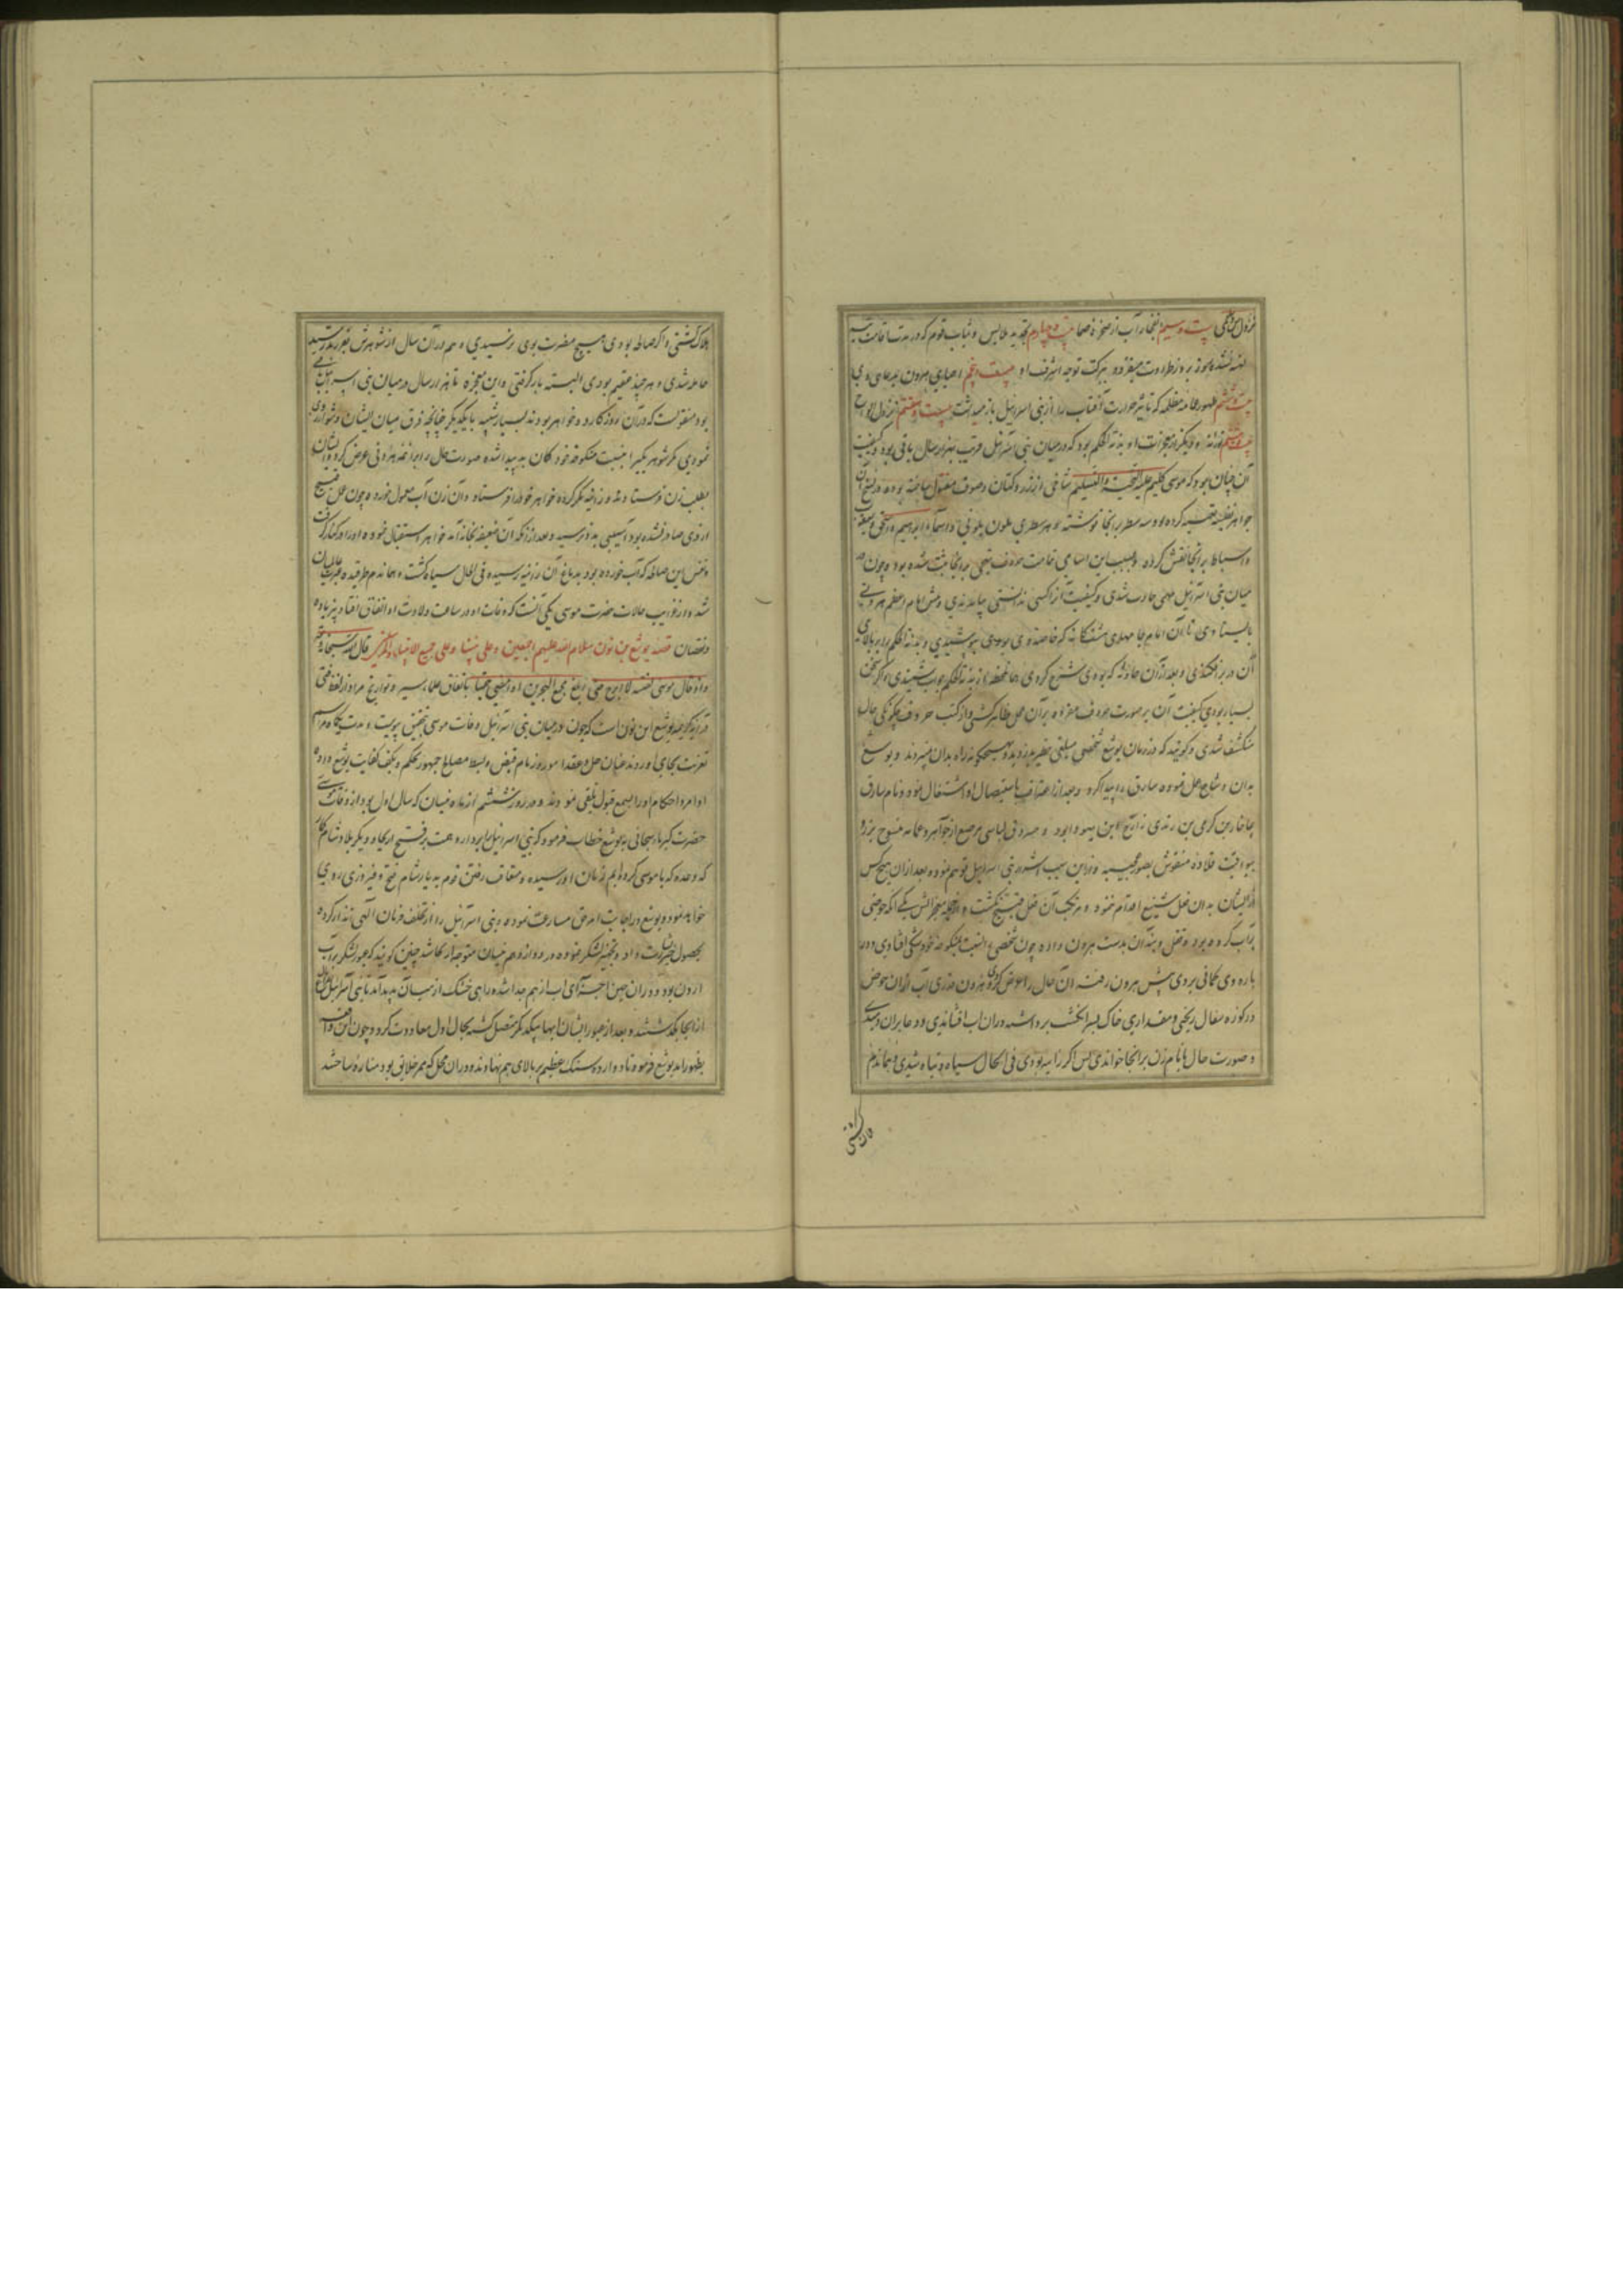 نزول من و سلوی بیست و سیم انفجار آب از صخره صما بیست و چهارم تجدید ملابس و ثیاب قوم که در مدت اقامت تیه
کهنه نشده هر روز طراوت میفزود ببرکت توجه اشرف او بیست و پنجم احیای هرون
بیست و ششم ظهور غمامه مظله که تاثیر حرارت آفتاب را از بنی اسرائیل باز میداشت بیست و هفتم نزول الواح
بیست و هشتم و دیگر از معجزات او بدنة الحکم بود که در میان بنی اسرائیل قریب بهزار سال باقی بود و کیفیت
آن چنان بود که موسی کلیم علیه التحیة و التسلیم از زر و کتان و صوف مفتول ساخته بود و در نسخ آن
جواهر نفیسه تعبیه کرده بود و سه سطر بر انجا نوشته و هر سطری بلون و اسماء ابراهیم و اسحق و یعقوب
و اسباط بر آنجا نقش کرده و بسبب این اسامی تمامت حروف تهجی بر انجا ثبت شده بود و چون در
میان بنی اسرائیل مهمی حادث شدی و کیفیت آنرا کسی ندانستی بیامدندی و پیش امام اعظم هرونی
بایستادی تا آن امام جامهای که خاصه وی بودی بپوشیدی و بدنة الحکم را بر بالای
آن در بر افکندی و بعد از آن حادثه که بودی شرح کردی از بدنة الحکم جواب شنیدی و اگر سخن
بسیار بودی کیفیت آن بر صورت حروف مقروه بر آن محل ظاهر گشتی و از کتب حروف چگونگی حال
منکشف شدی و گویند که در زمان یوشع شخصی مبلغی خطیر بدزدید و هیچکس راه بدان نمیبردند و یوشع
بدان و شاح عمل نموده سارق را پیدا کرد و بعد از اعتراف باستیصال او اشتغال نمود و نام سارق
عاخار بن کرمی بن زندی بن زارح ابن یهودا بود و مسروق لباسی مرصع از جواهر و عمامه منسوج بزر و
یواقیت قلاده منقوش بصور عجیبه و از این سبب اشرار بنی اسرائیل توهم نموده بعد از ان هیچکس
از ایشان بدان فعل شنیع اقدام ننمود و مرتکب آن فعل قبیح نگشت و از جمله معجزاتش یکی آنکه حوضی
پر آب کرده بود و قفل و بند آن بدست هرون داده چون شخصی را نسبت بمنکوحه خود شکی افتادی و در
باره وی گمانی بردی پیش هرون رفته آن حال را عرض کردی هرون قدری آب از ان حوض
در کوزه سفال ریختی و مقداری خاک بسر انگشت برداشته در ان آب افشاندی و دعا بران دمیدی
و صورت حال با نام زن بر انجا خواندی پس اگر زانیه بودی فی الحال سیاه و تباه شدی و هماندم
هلاک گشتی و اگر صالحه بودی هیچ مضرت بوی نرسیدی و هم در آن سال از شوهرش
حامله شدی و هر چند عقیم بودی البته بار گرفتی و این معجزه تا هزار سال در میان بنی اسرائیل باقی
بود منقولست که در آن روزگار دو خواهر بودند بسیار شبیه بایکدیگر چنانچه فرق میان ایشان دشوار روی
نمودی مگر شوهر یکی را بنسبت منکوحه خود گمان بد پیدا شده صورت حال را بر ائمه هرونی عرض کرد و ایشان
بطلب زن فرستادند و زانیه مکر کرده خواهر خود را فرستاد و آن زن آب معمول خورده چون عمل قبیح
از وی صادر نشده بود آسیبی بدو نرسید و بعد از آنکه آن ضعیفه بخانه آمد خواهر استقبال نموده او را در کنار گرفت
و نفس این صالحه که آب خورده بود بدماغ آن زانیه رسیده فی الحال سیاه گشت و هماندم طرقیده عبرت عالمیان
شد و از غرایب حالات حضرت موسی یکی آنست که وفات او در ساعت ولادت او اتفاق افتاد بی زیاده
و نقصان قصه یوشع بن نون سلام الله علیهم اجمعین و علی نبینا و علی جمیع الانبیاء و المرسلین قال الله سبحانه و تعالی
و اذ قال موسی لفتیه لا ابرح حتی ابلغ مجمع البحرین او امضی حقبا باتفاق علماء سیر و تواریخ مراد از لفظ فتی
در آیه کریمه یوشع ابن نون است که چون در میان بنی اسرائیل وفات موسی بتحقیق پیوست و مدت یکماه مراسم
تعزیت بجای اوردند عنان حل و عقد امور و زمام قبض و بسط مصالح جمهور بحکم و بکف کفایت یوشع داده
اوامر و احکام او را بسمع قبول تلقی نمودند و در روز ششم از ماه نیسان که سال اول بود از وفات موسی
حضرت کبریاء سبحانی با یوشع خطاب فرمود که بنی اسرائیل را بردار و همت بر فتح اریحا و دیگر بلاد شام گمار
که وعده که با موسی کرده ایم زمان او رسیده و متعاقب رفتن قوم بدیار شام فتح و فیروزی روی
خواهد نمود و یوشع در اجابت امر حق مسارعت نموده و بنی اسرائیل را از تخلف فرمان الهی انذار کرده
بحصول بشارت داد و تجهیز لشکر نموده در دوازدهم نیسان متوجه اریحا شد چنین گویند که عبور لشکر بر آب
اردن بود در ان حین اجزای آب از هم جدا شده راهی خشک از میان پدید آمد تا بنی اسرائیل
از انجا بگذشتند و بعد از عبور ایشان ابها بیکدیگر متصل گشته بحال اول معاودت کرد و چون این واقعه
بظهور امد یوشع فرمود تا دوازده سنگ عظیم بر بالای هم نهادند و دران محل که ممر خلایق بود مناره ساختند